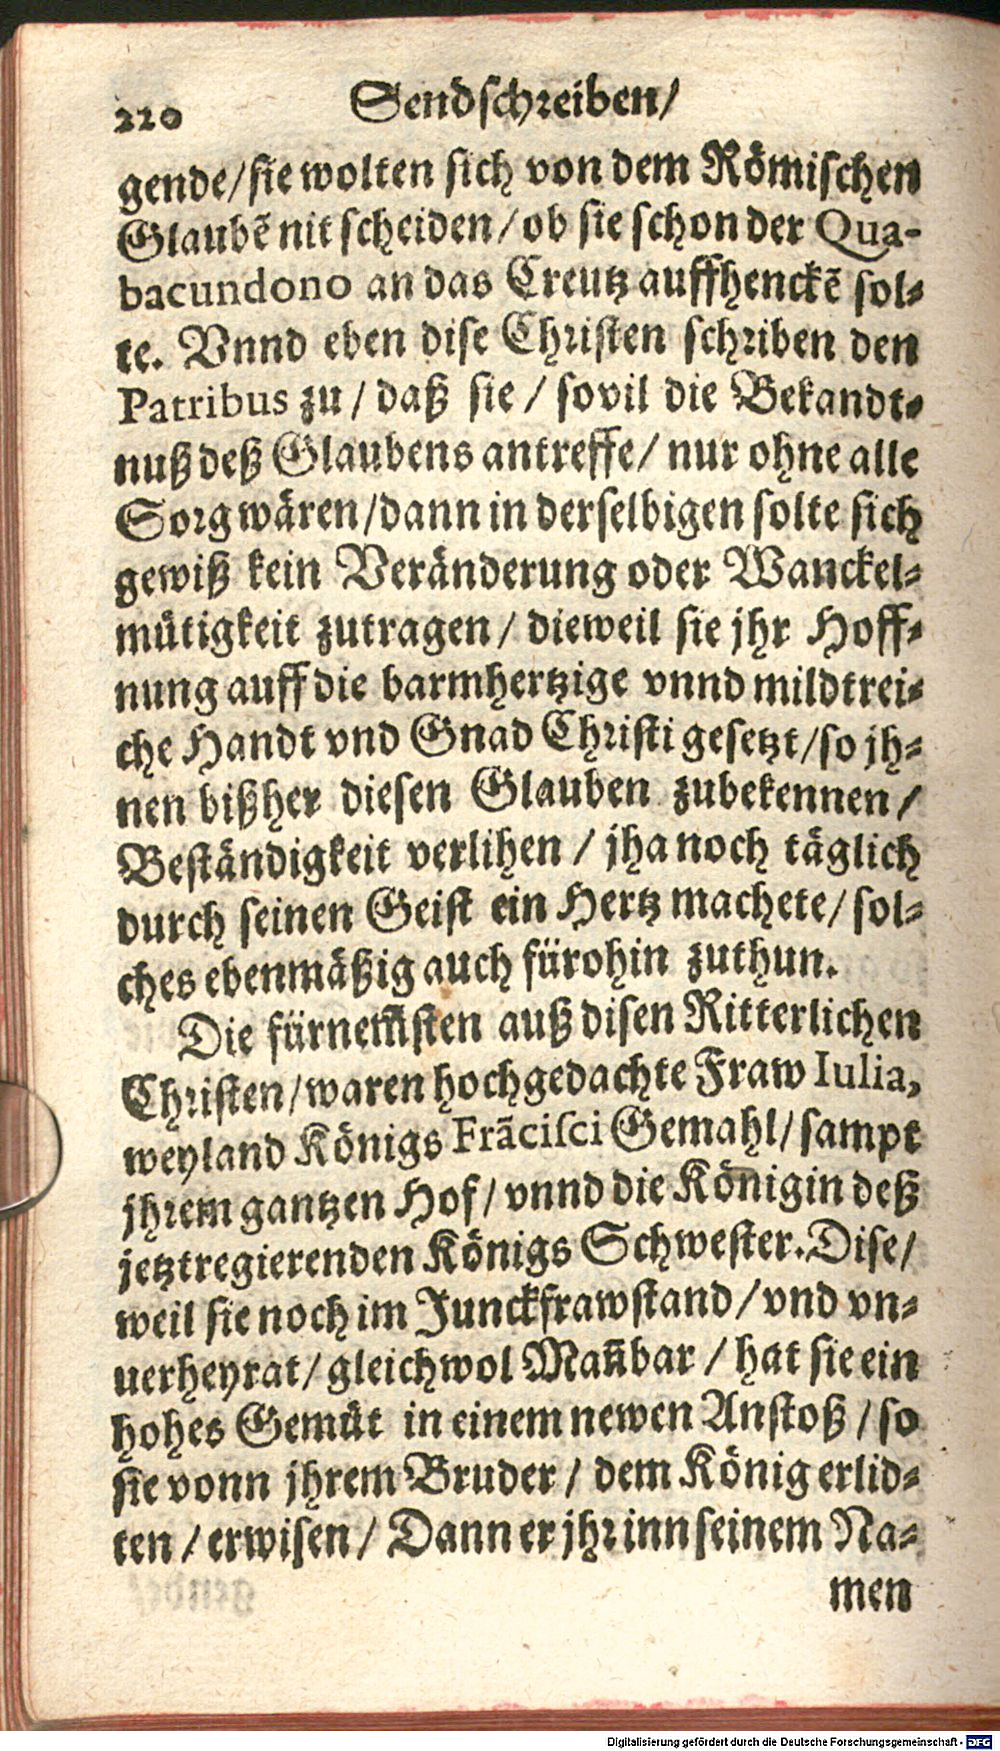 220 Sendschreiben/
gende/sie wolten sich von dem Römischen
Glaubẽ nit scheiden/ob sie schon der Qua-
bacundono an das Creutz auffhenckẽ sol-
te. Vnnd eben dise Christen schriben den
Patribus zu/ daß sie/ sovil die Bekandt-
nuß deß Glaubens antreffe/ nur ohne alle
Sorg wären/dann in derselbigen solte sich
gewiß kein Veränderung oder Wanckel-
mütigkeit zutragen/ dieweil sie jhr Hoff-
nung auff die barmhertzige vnnd mildtrei-
che Handt vnd Gnad Christi gesetzt/so jh-
nen bißher diesen Glauben zubekennen/
Beständigkeit verlihen/ jha noch täglich
durch seinen Geist ein Hertz machete/ sol-
ches ebenmäßig auch fürohin zuthun.
Die fürnem̃sten auß disen Ritterlichen
Christen/waren hochgedachte Fraw Iulia,
weyland Königs Frãcisci Gemahl/ sampt
jhrem gantzen Hof/ vnnd die Königin deß
jetztregierenden Königs Schwester. Dise/
weil sie noch im Junckfrawstand/ vnd vn-
uerheyrat/ gleichwol Mañbar/ hat sie ein
hohes Gemüt in einem newen Anstoß/ so
sie vonn jhrem Bruder/ dem König erlid-
ten/ erwisen/ Dann er jhr inn seinem Na-
men
Digitalisierung gefördert durch die Deutsche Forschungsgemeinschaft - DFG